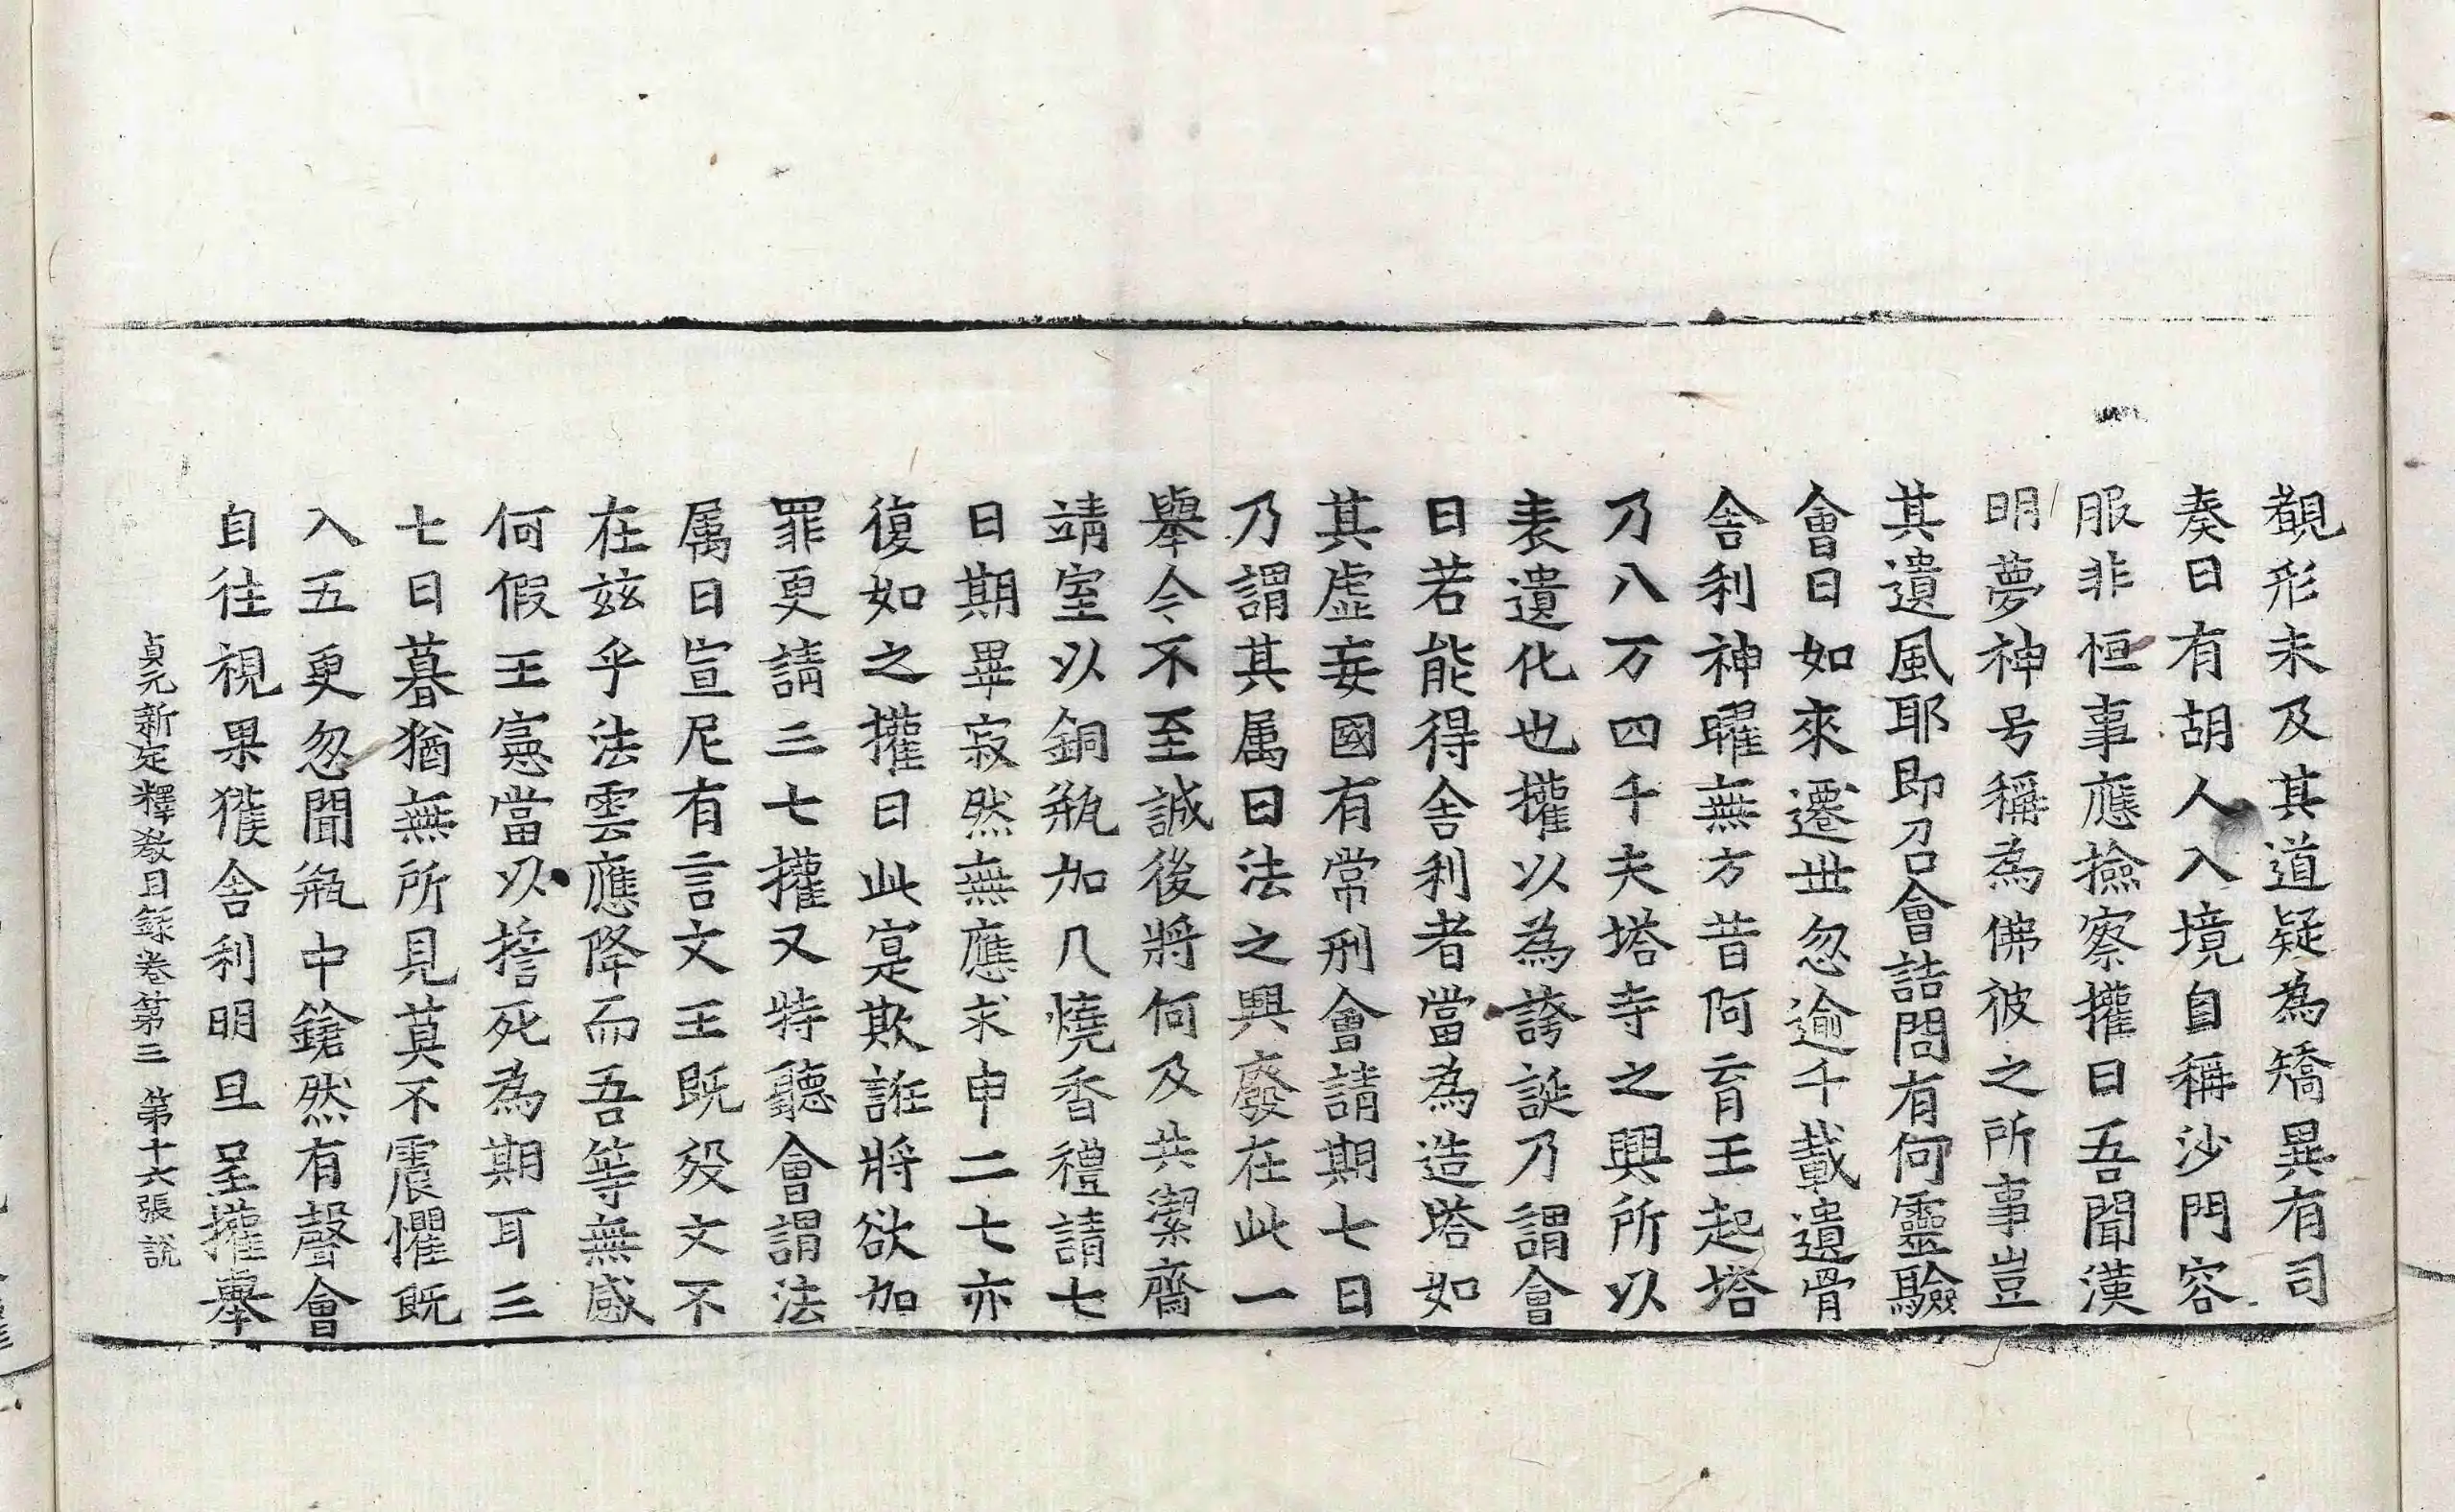 覩形未及其道疑為矯異有司
奏曰有胡人入境自稱沙門容
服非恒事應撿察攉曰吾聞漢
明夢神号稱為佛彼之所事豈
其遺風耶即召會詰問有何靈驗
會曰如來遷世忽逾千載遺骨
舍利神曜無方昔阿育王起塔
乃八万四千夫塔寺之興所以
表遺化也攉以為誇誕乃謂會
曰若能得舍利者當為造塔如
其虛妄國有常刑會請期七日
乃謂其属曰法之興廢在此一
舉今不至誠後將何及共潔齋
靖室以銅瓶加几燒香禮請七
日期畢寂然無應求申二七亦
復如之攉曰此寔欺誑將欲加
罪更請三七攉又特聽會謂法
属曰宣尼有言文王既歿文不
在玆乎法雲應降而吾等無感
何假王憲當以誓死為期耳三
七日暮猶無所見莫不震懼既
入五更忽聞瓶中鎗然有聲會
自往視果獲舍利明旦呈攉舉
貞元新定釋教目録卷第三 第十六張 說